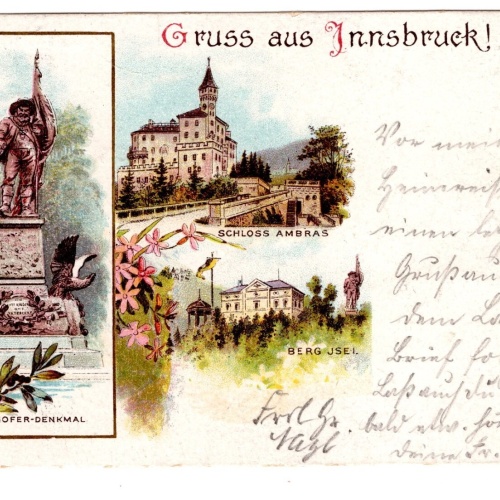 Gruss aus Innsbruck!
SCHLOSS AMBRAS
BERG JSEL
HOFER-DENKMAL
Vor mei
Heimreis
einen
Gruß au
dem
Brief fo
Laß auch Du
bald etw. hö
deine Fr.
Frl. Gr.
Nagl